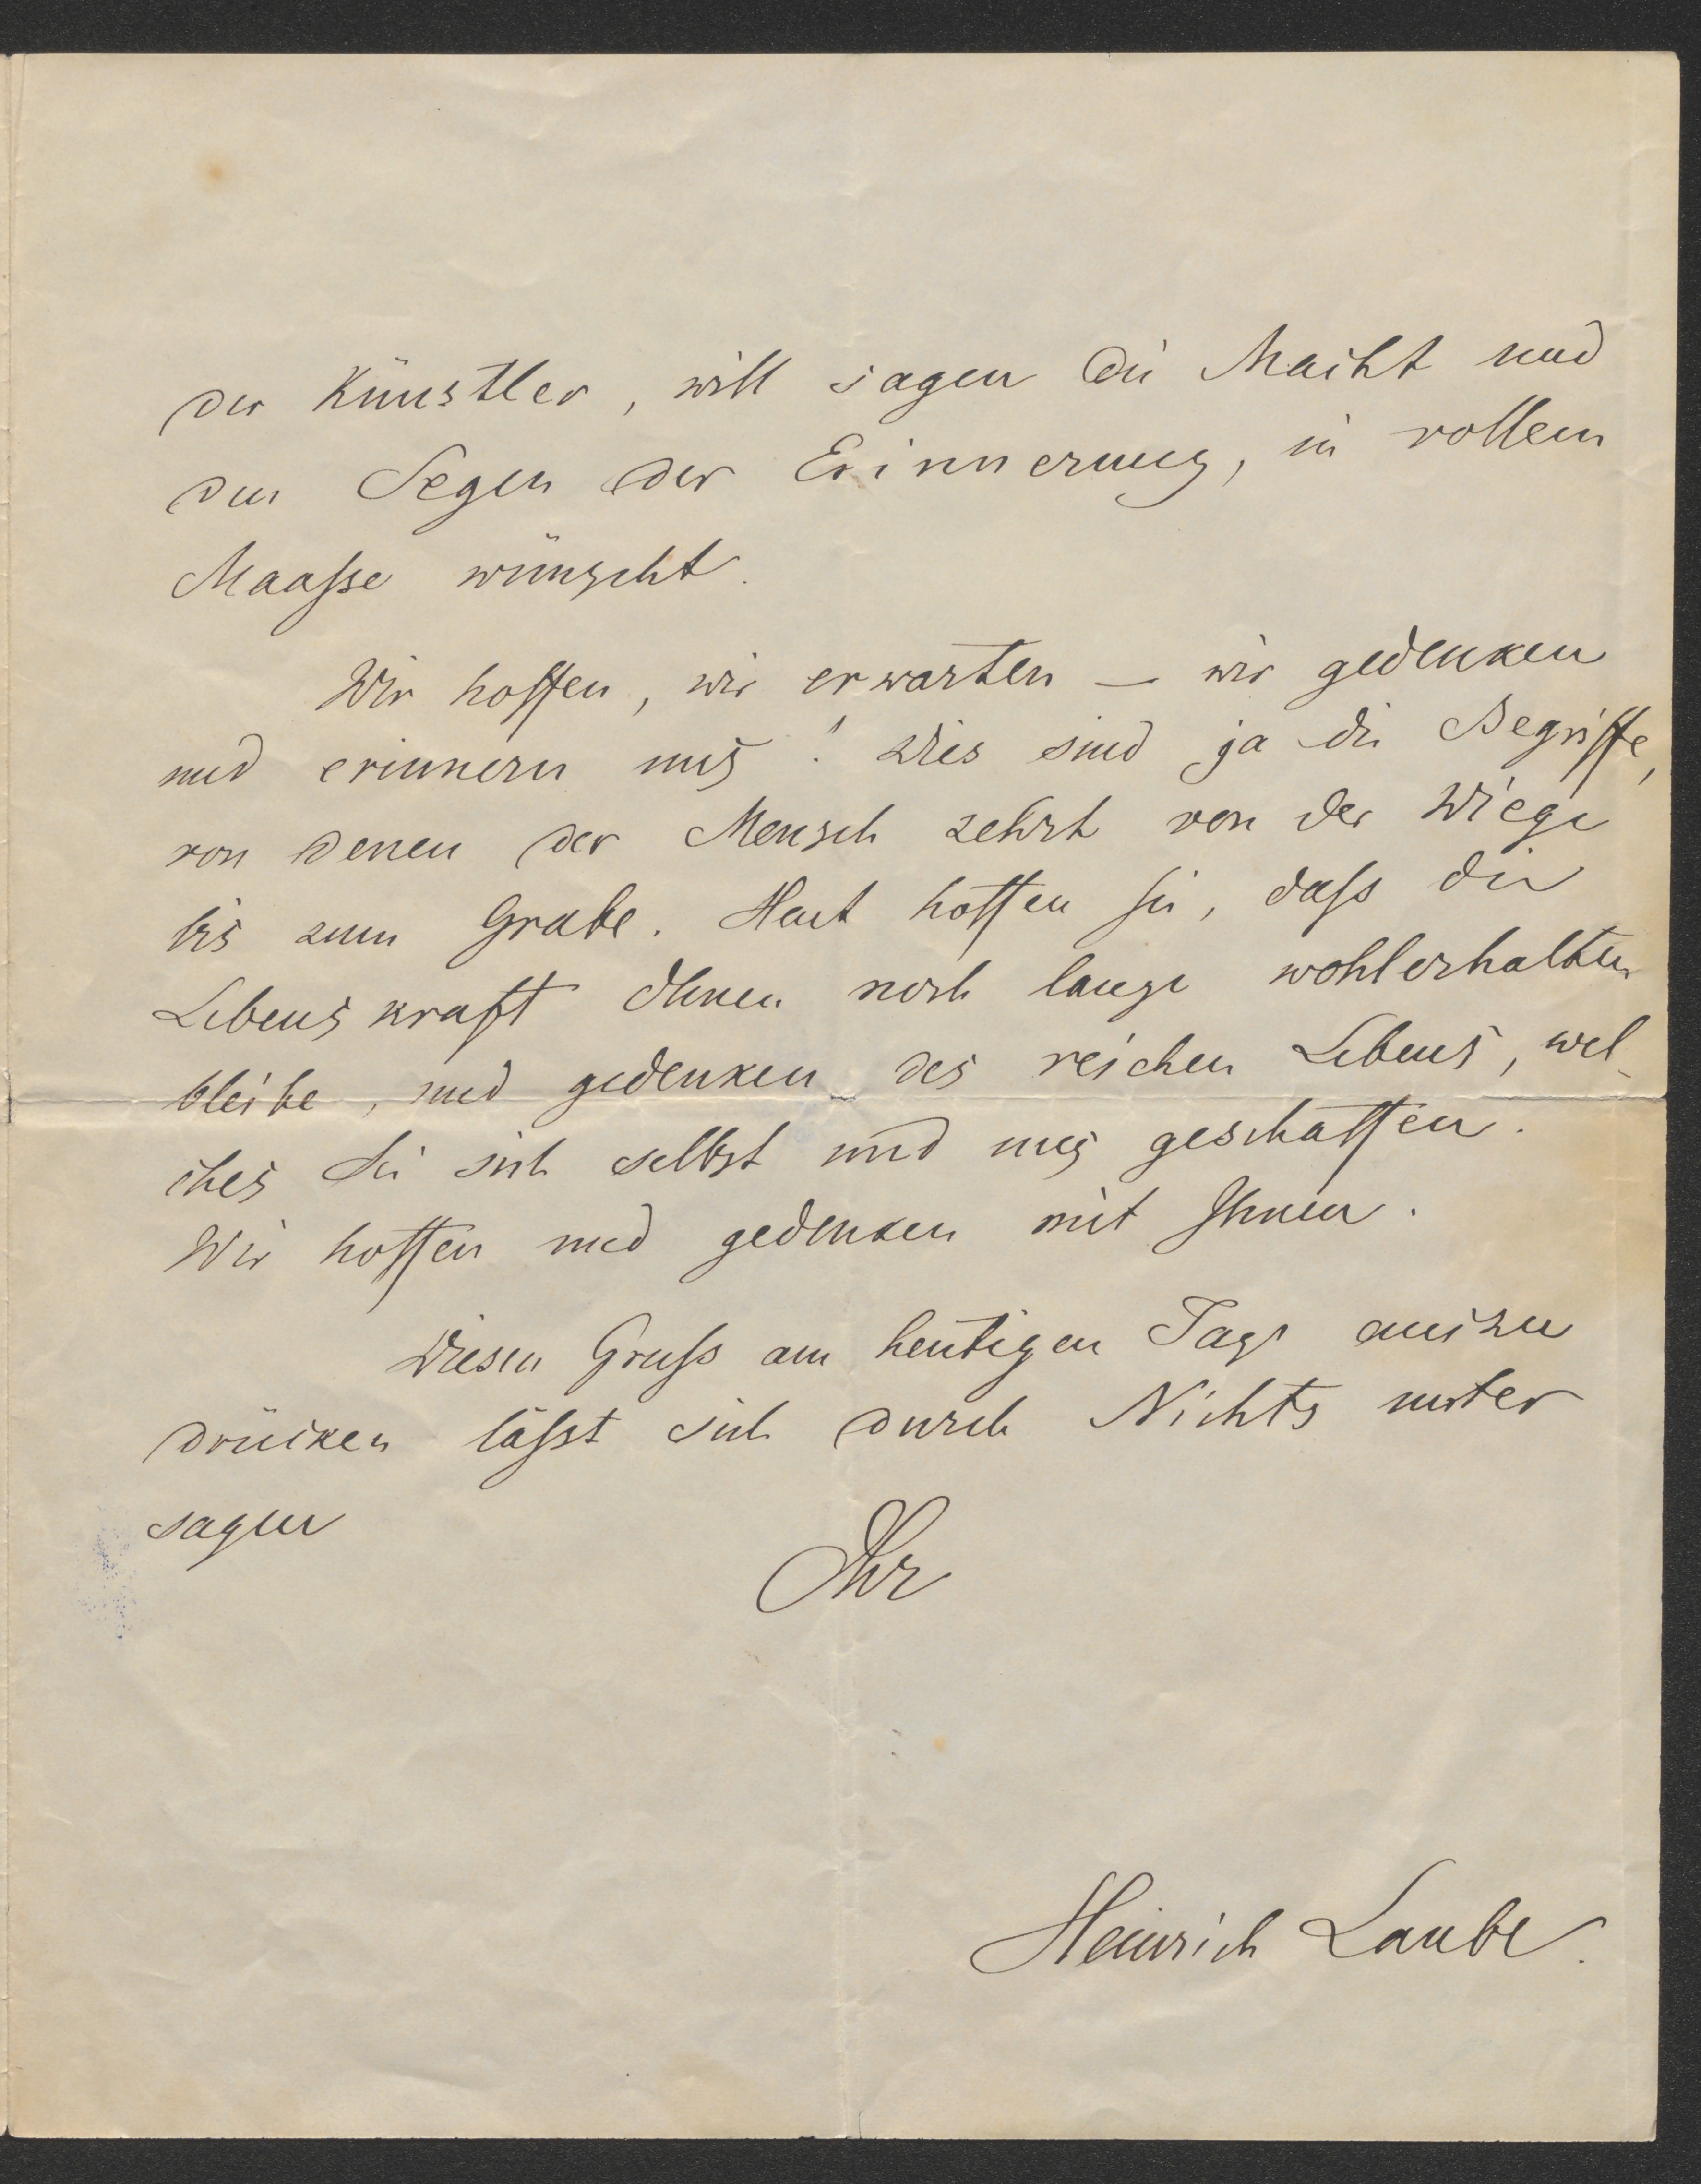 der Künstler, will sagen die Macht und
den Segen der Erinnerung, in vollem
Maaße wünscht.
Wir hoffen, wir erwarten — wir gedenken
und erinnern uns! Dies sind ja die Begriffe,
von denen der Mensch zehrt von der Wiege
bis zum Grabe. Heut hoffen Sie, daß die
Lebenskraft Ihnen noch lange wohlerhalten
bleibe, und gedenken des reichen Lebens, wel-
ches Sie sich selbst und uns geschaffen.
Wir hoffen und gedenken mit Ihnen.
Diesen Gruß am heutigen Tage auszu
drücken läßt sich durch Nichts unter
sagen
Ihr
Heinrich Laube.